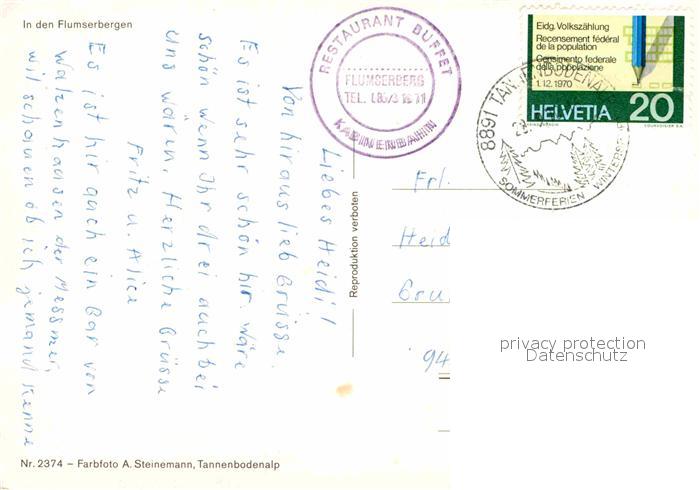 In den Flumserbergen
RESTAURANT BUFFET
FLUMSERBERG
TEL.
KABINENBAHN
Eidg. Volkszählung
Recensement fédéral
de la population
Censimento federale
della popolazione
1.12.1970
HELVETIA 20
COURVOISIER S.A.
8891 TANNENBODENALP
SOMMERFERIEN WINTERSPORT
Liebes Heidi!
Von hiraus lieb Grüsse.
Es ist sehr schön hir. Wäre
schön wenn Ihr drei auch bei
uns wären. Herzliche Grüsse
Fritz u. Alice
Es ist hir auch ein Bar von
Walzenhausen der Messmer,
wil schauen ob ich jemand kenne
Reproduktion verboten
Frl.
Heid
Gru
94
privacy protection
Datenschutz
Nr. 2374 – Farbfoto A. Steinemann, Tannenbodenalp